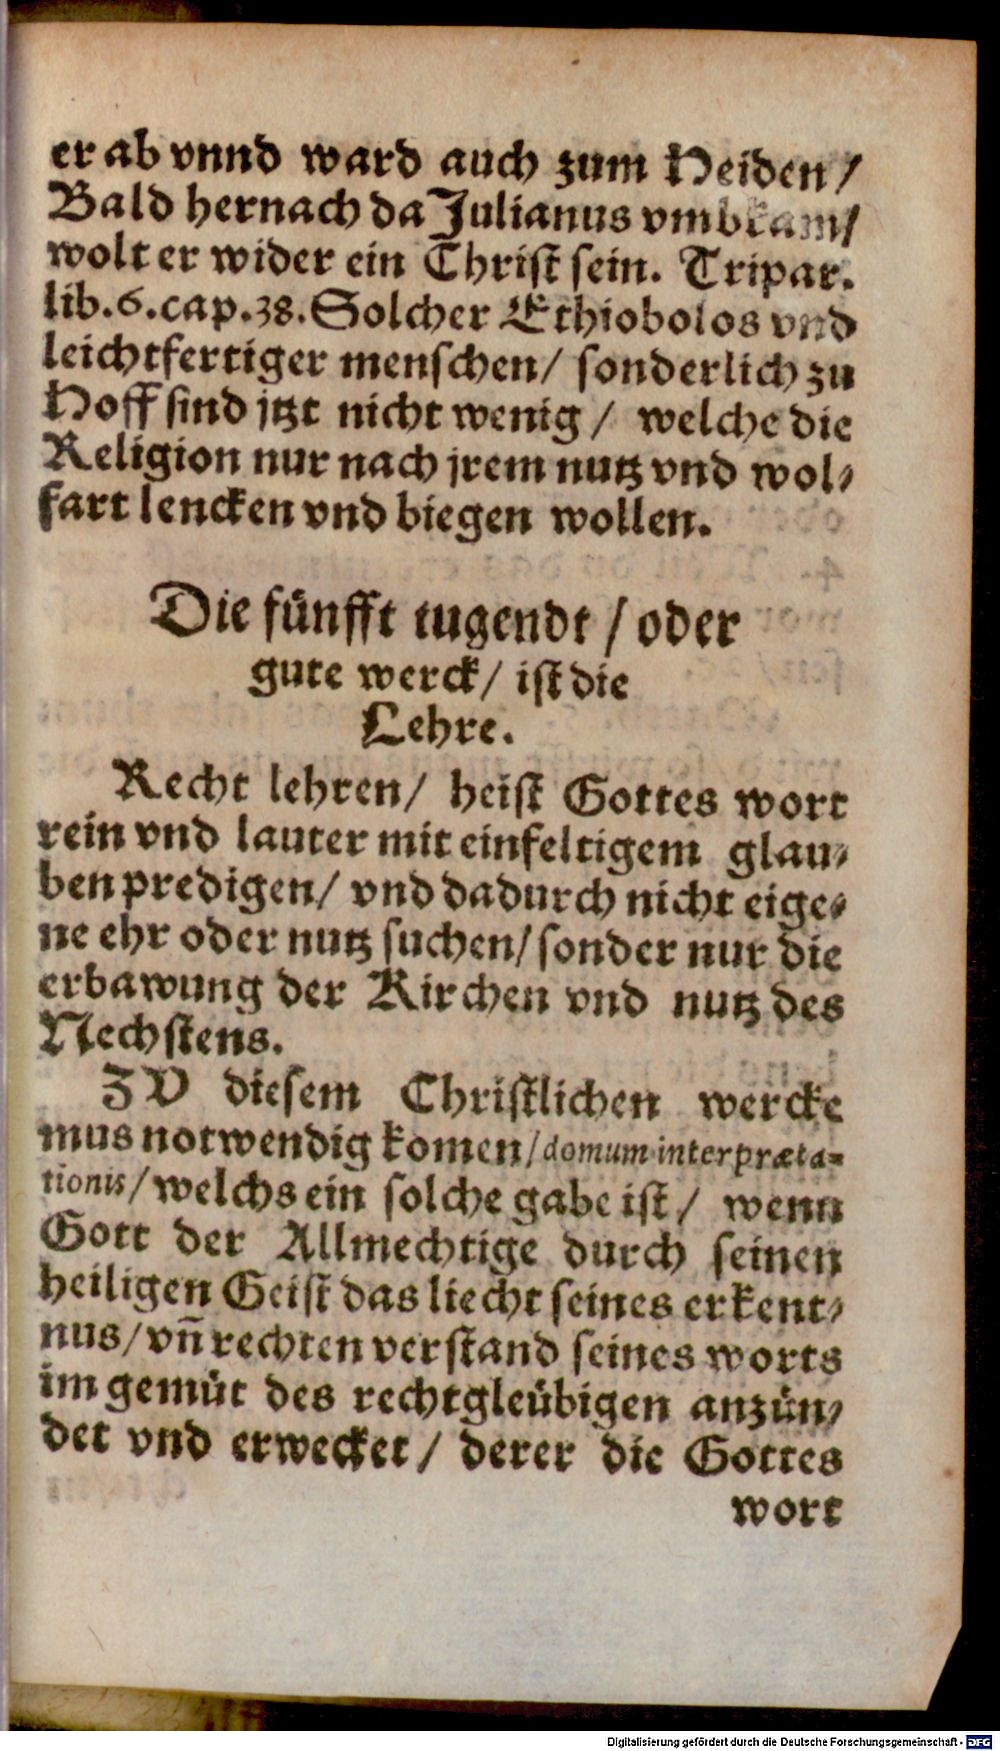 er ab vnnd ward auch zum Heiden/
Bald hernach da Julianus vmbkam/
wolt er wider ein Christ sein. Tripar.
lib. 6. cap. 38. Solcher Ethiobolos vnd
leichtfertiger menschen/ sonderlich zu
Hoff sind jtzt nicht wenig/ welche die
Religion nur nach jrem nutz vnd wol-
fart lencken vnd biegen wollen.
Die fünfft tugendt/ oder
gute werck/ ist die
Lehre.
Recht lehren/ heist Gottes wort
rein vnd lauter mit einfeltigem glau-
ben predigen/ vnd dadurch nicht eige-
ne ehr oder nutz suchen/ sonder nur die
erbawung der Kirchen vnd nutz des
Nechstens.
ZV diesem Christlichen wercke
mus notwendig komen/ domum interpræta-
tionis/ welchs ein solche gabe ist/ wenn
Gott der Allmechtige durch seinen
heiligen Geist das liecht seines erkent-
nus/ vñ rechten verstand seines worts
im gemüt des rechtgleübigen anzün-
det vnd erwecket/ derer die Gottes
wort
Digitalisierung gefördert durch die Deutsche Forschungsgemeinschaft - DFG